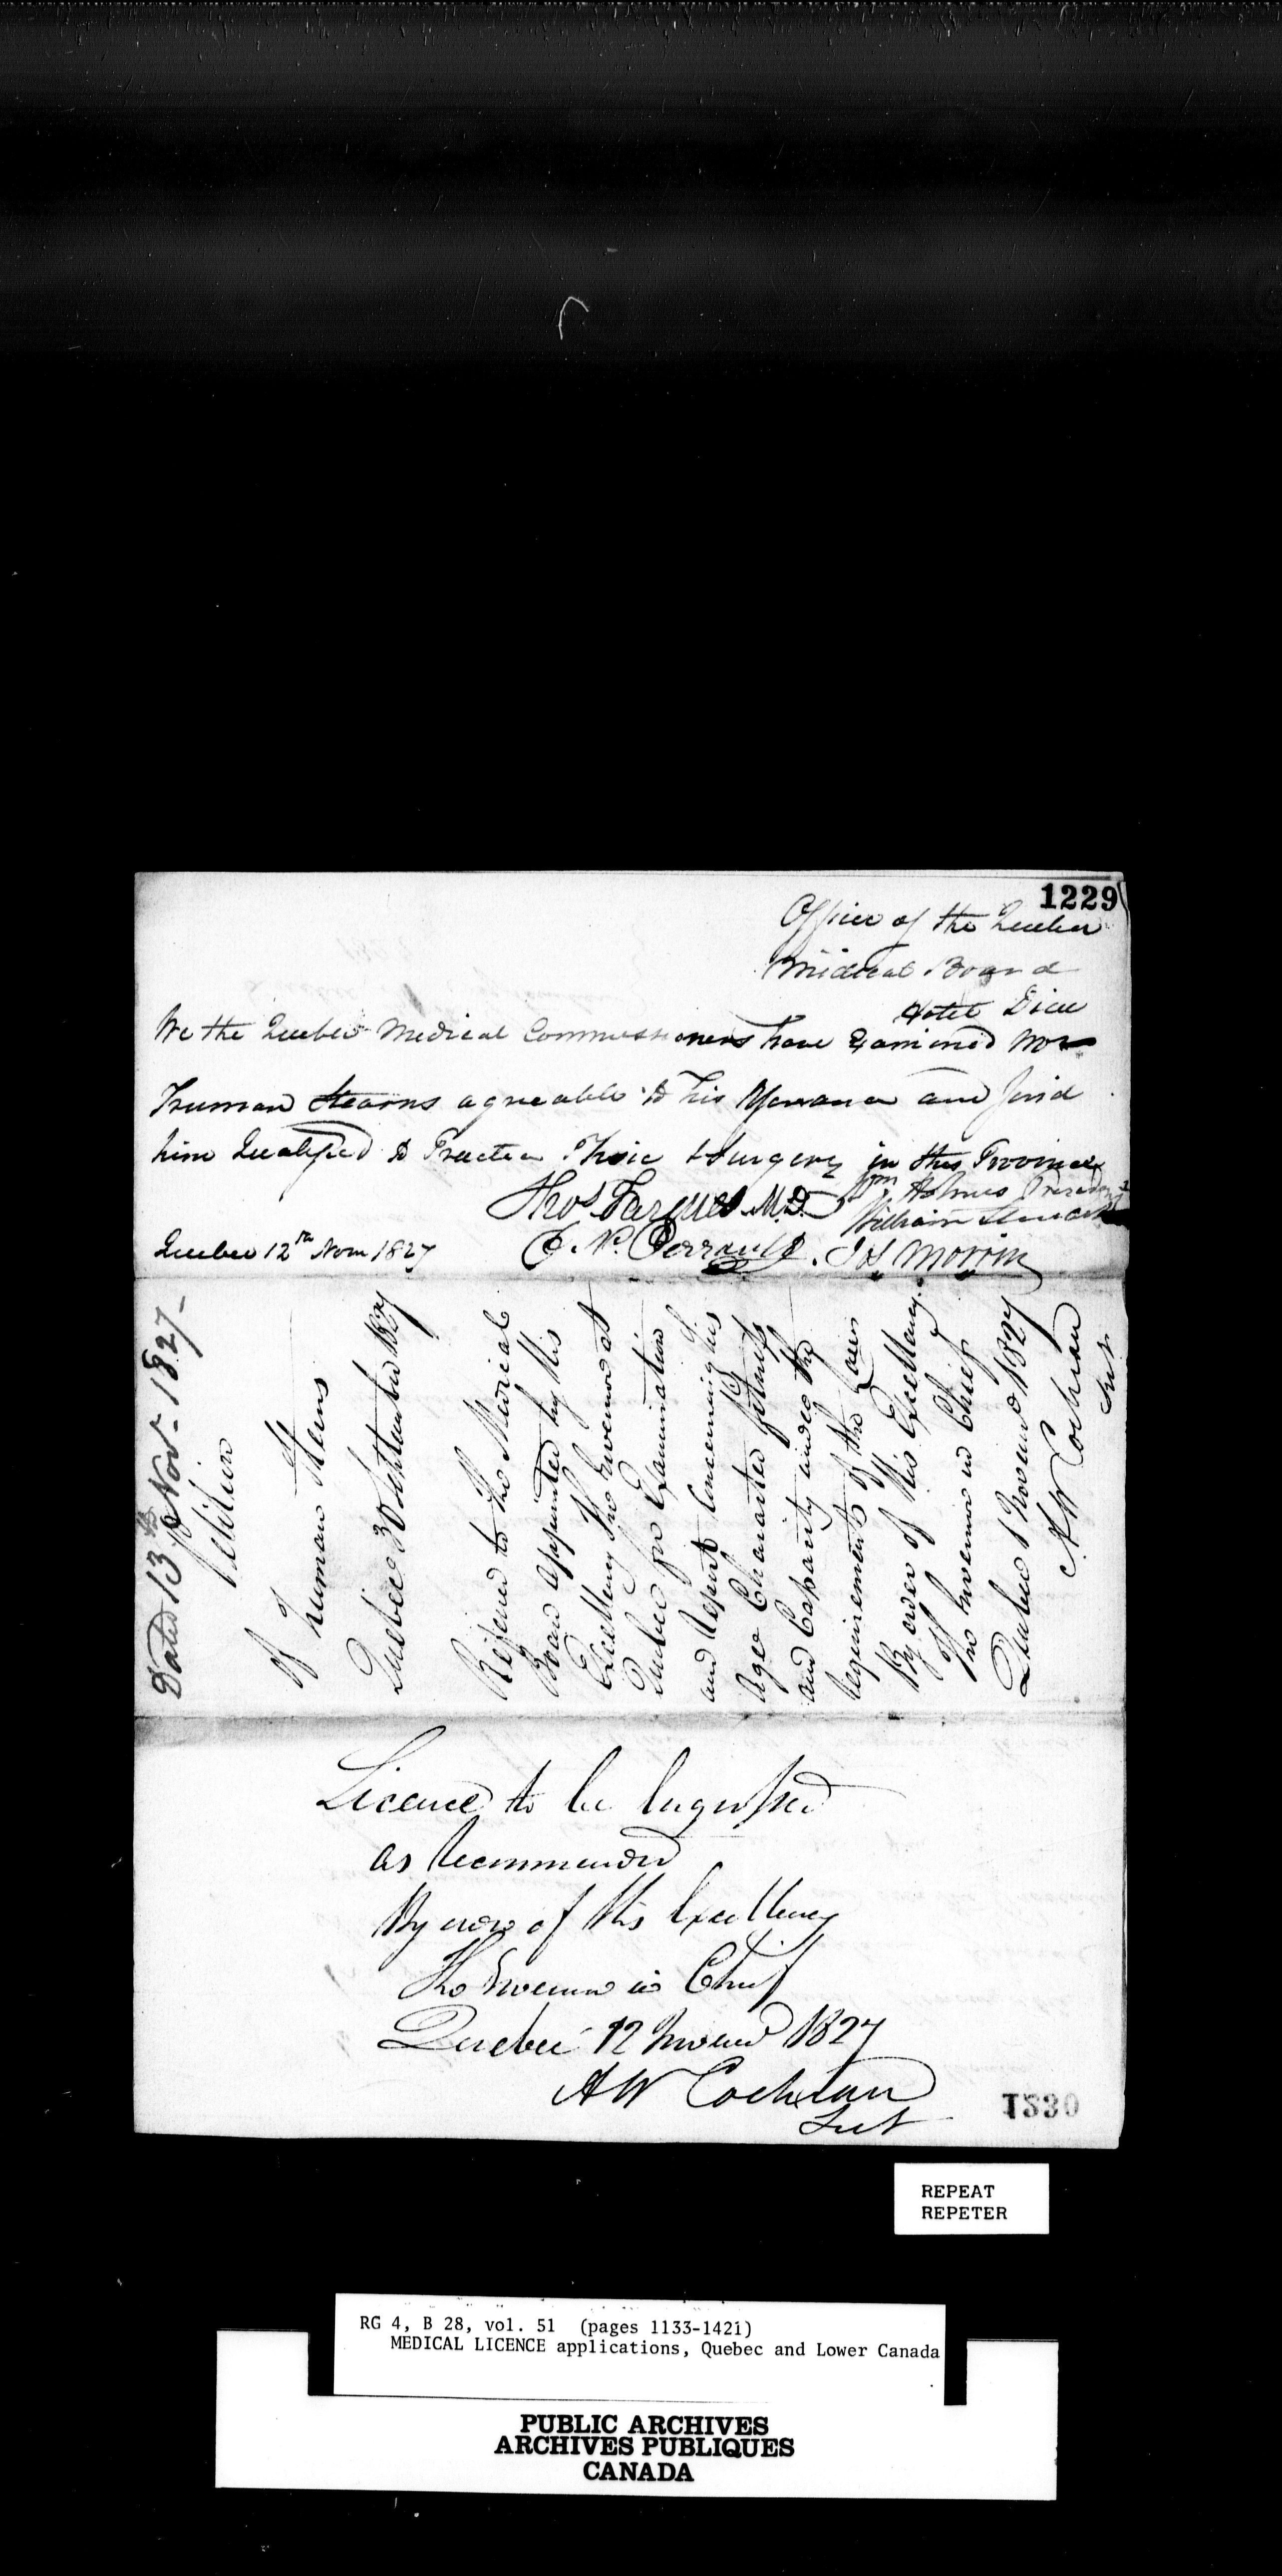 1229
Office of the Quebec
Medical Board
Hotel Dieu
We the Quebec Medical Commissioners have Examined
Truman Stearns agreable to his and find
him Qualified to Practice Phsic & Surgery in this Province
Wm Holmes President
Thos Fargues M.D.
William
C. N. Perrault. Js Morrin
Quebec 12th Novr 1827
Dated 13th Novr 1827-
Petition
of Truman Sterns
Quebec 30 September 1827
Refered to the Medical
Board appointed by His
Excellency the Governor at
Quebec for Examination
and Report concerning his
Age Character fitness
and Capacity under the
requirements of the Laws
By order of His Excellency
The Governor in Chief
Quebec 1 Novemr 1827
A W Cochran
Sect
Licence to be Engrossed
as recommended
By order of His Excellency
The Governor in Chief
Quebec 12 Novemr 1827
A W Cochran
Sect
1330
REPEAT
REPETER
RG 4, B 28, vol. 51 (pages 1133-1421)
MEDICAL LICENCE applications, Quebec and Lower Canada
PUBLIC ARCHIVES
ARCHIVES PUBLIQUES
CANADA